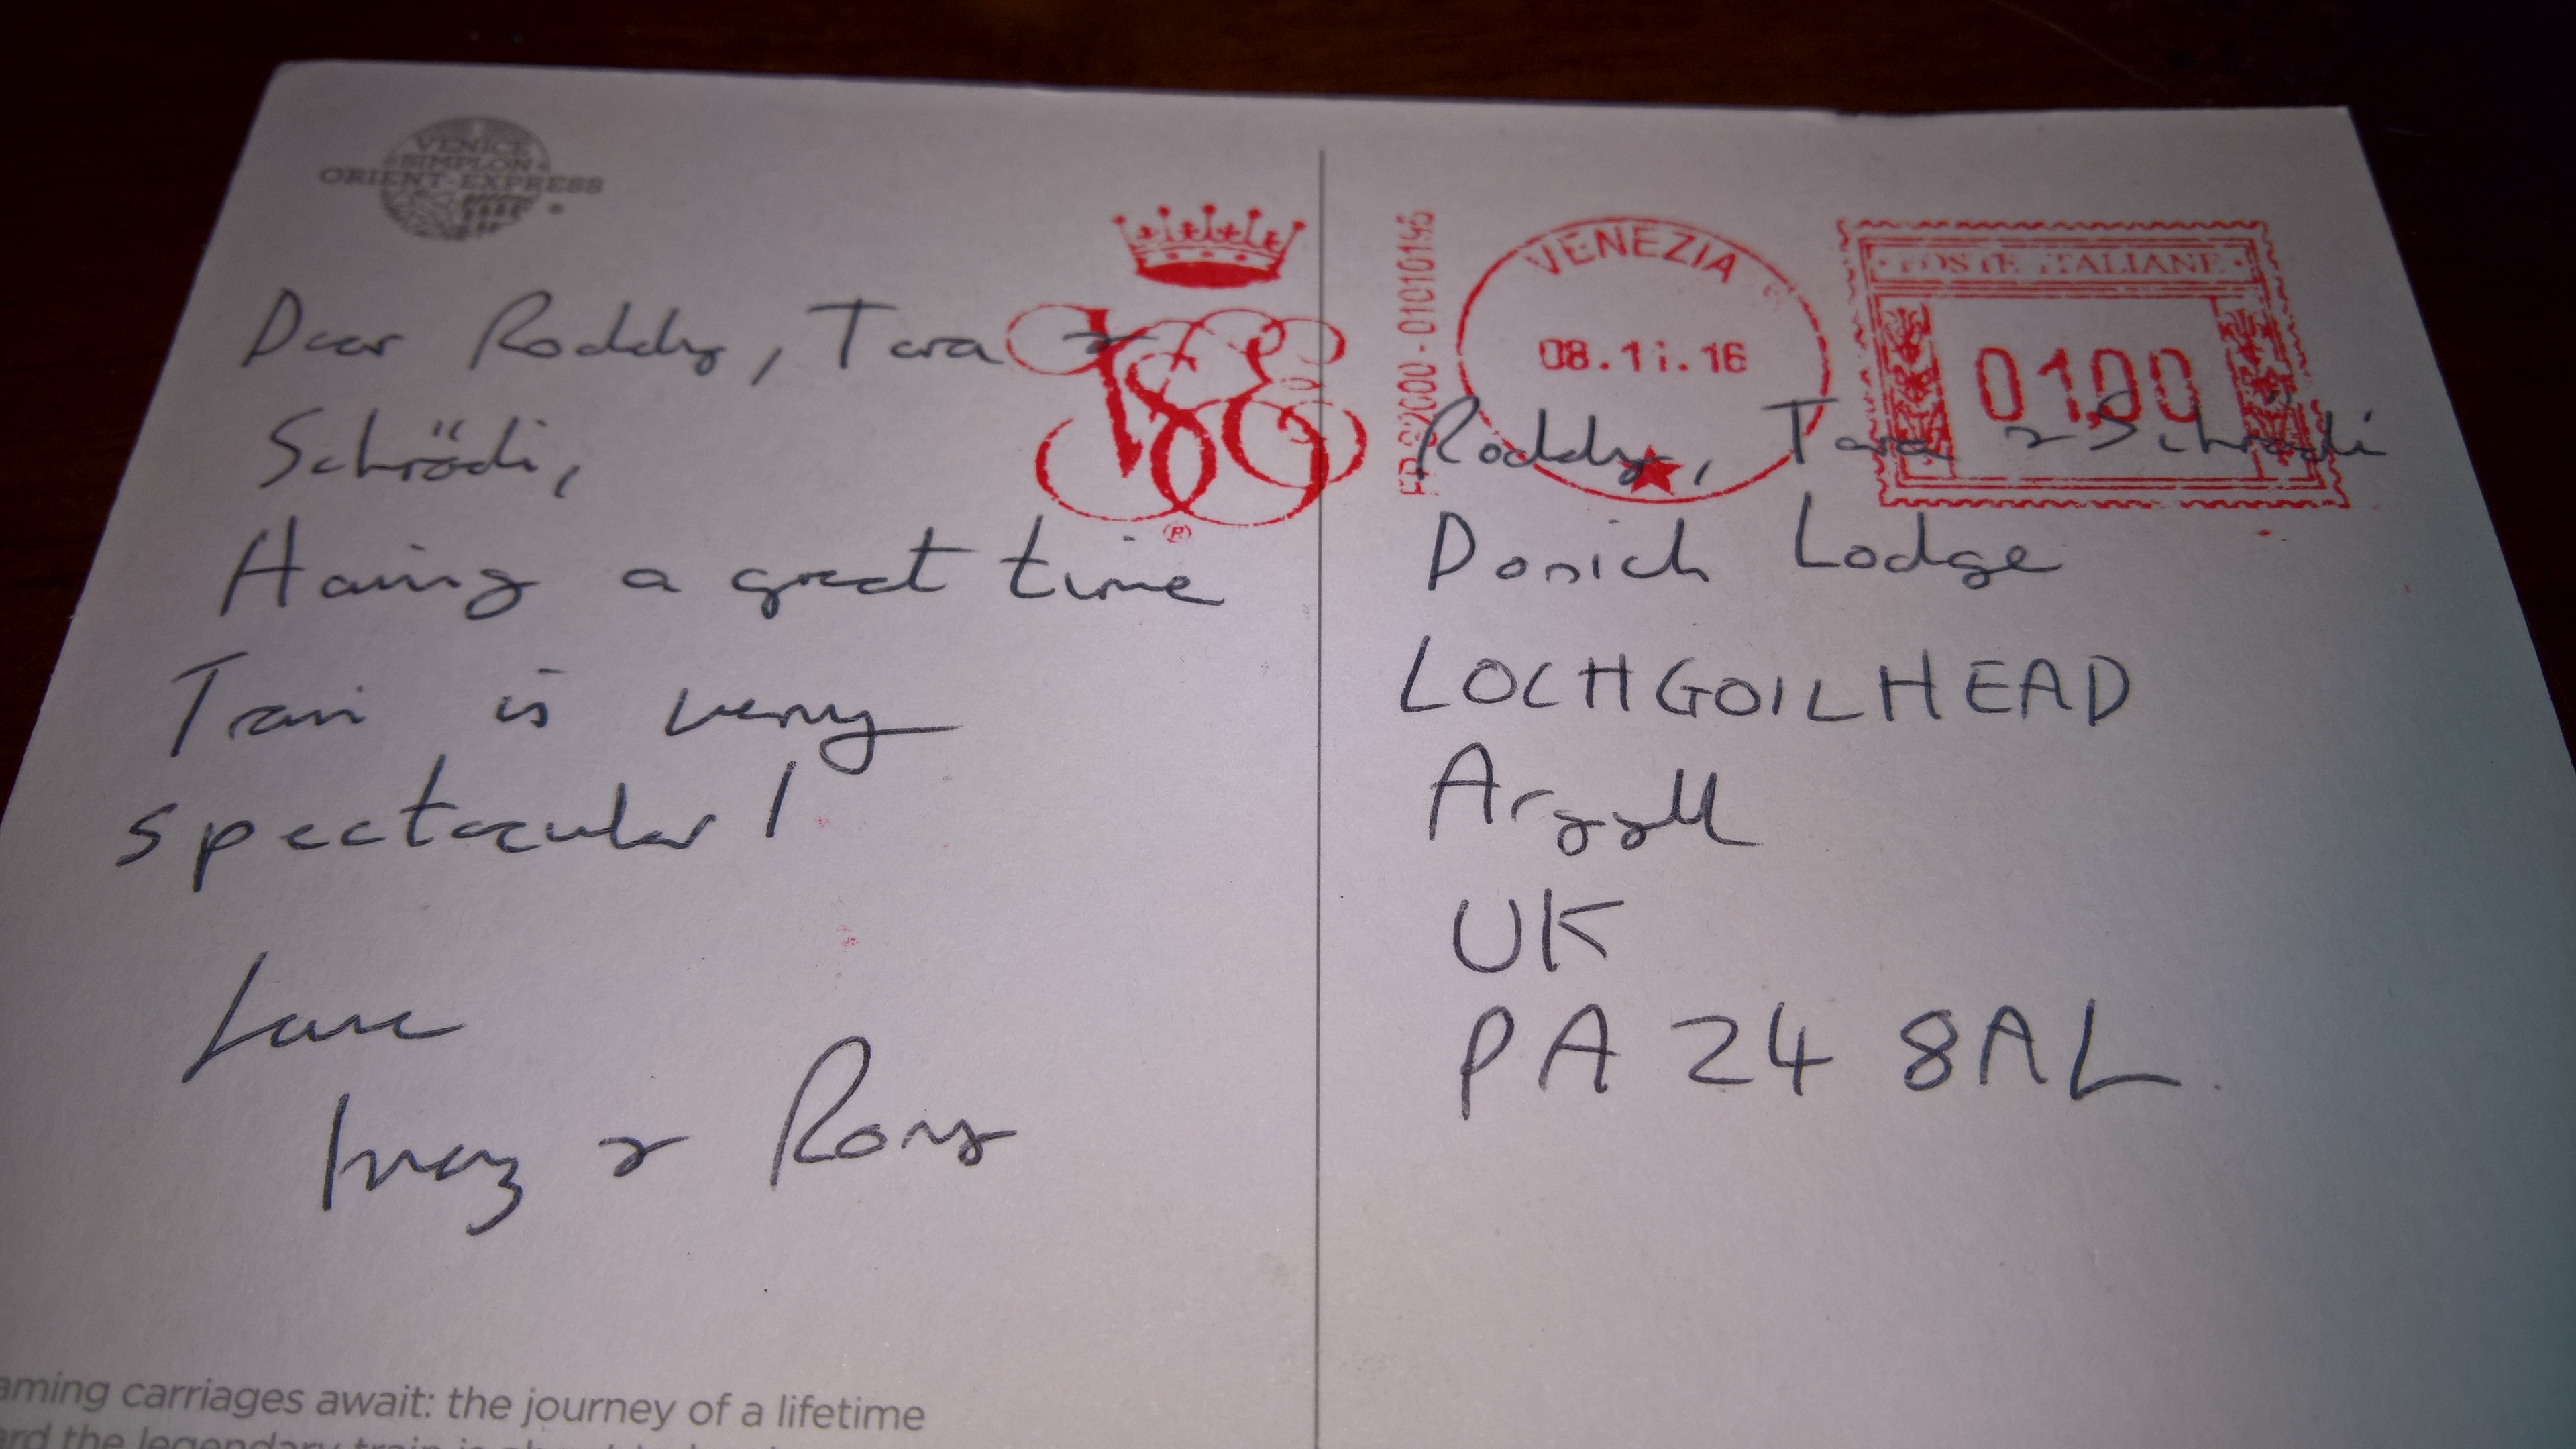 VENICE
SIMPLON
ORIENT-EXPRESS
Dear Roddy, Tara &
Schrödi,
Having a great time
Train is very
spectacular!
Love
& Rory
aming carriages await: the journey of a lifetime
ard the legendary train is
VSOE
®
VENEZIA
08.11.16
POSTE ITALIANE
0100
Roddy, Tara & Schrödi
Donich Lodge
LOCHGOILHEAD
Argyll
UK
PA24 8AL